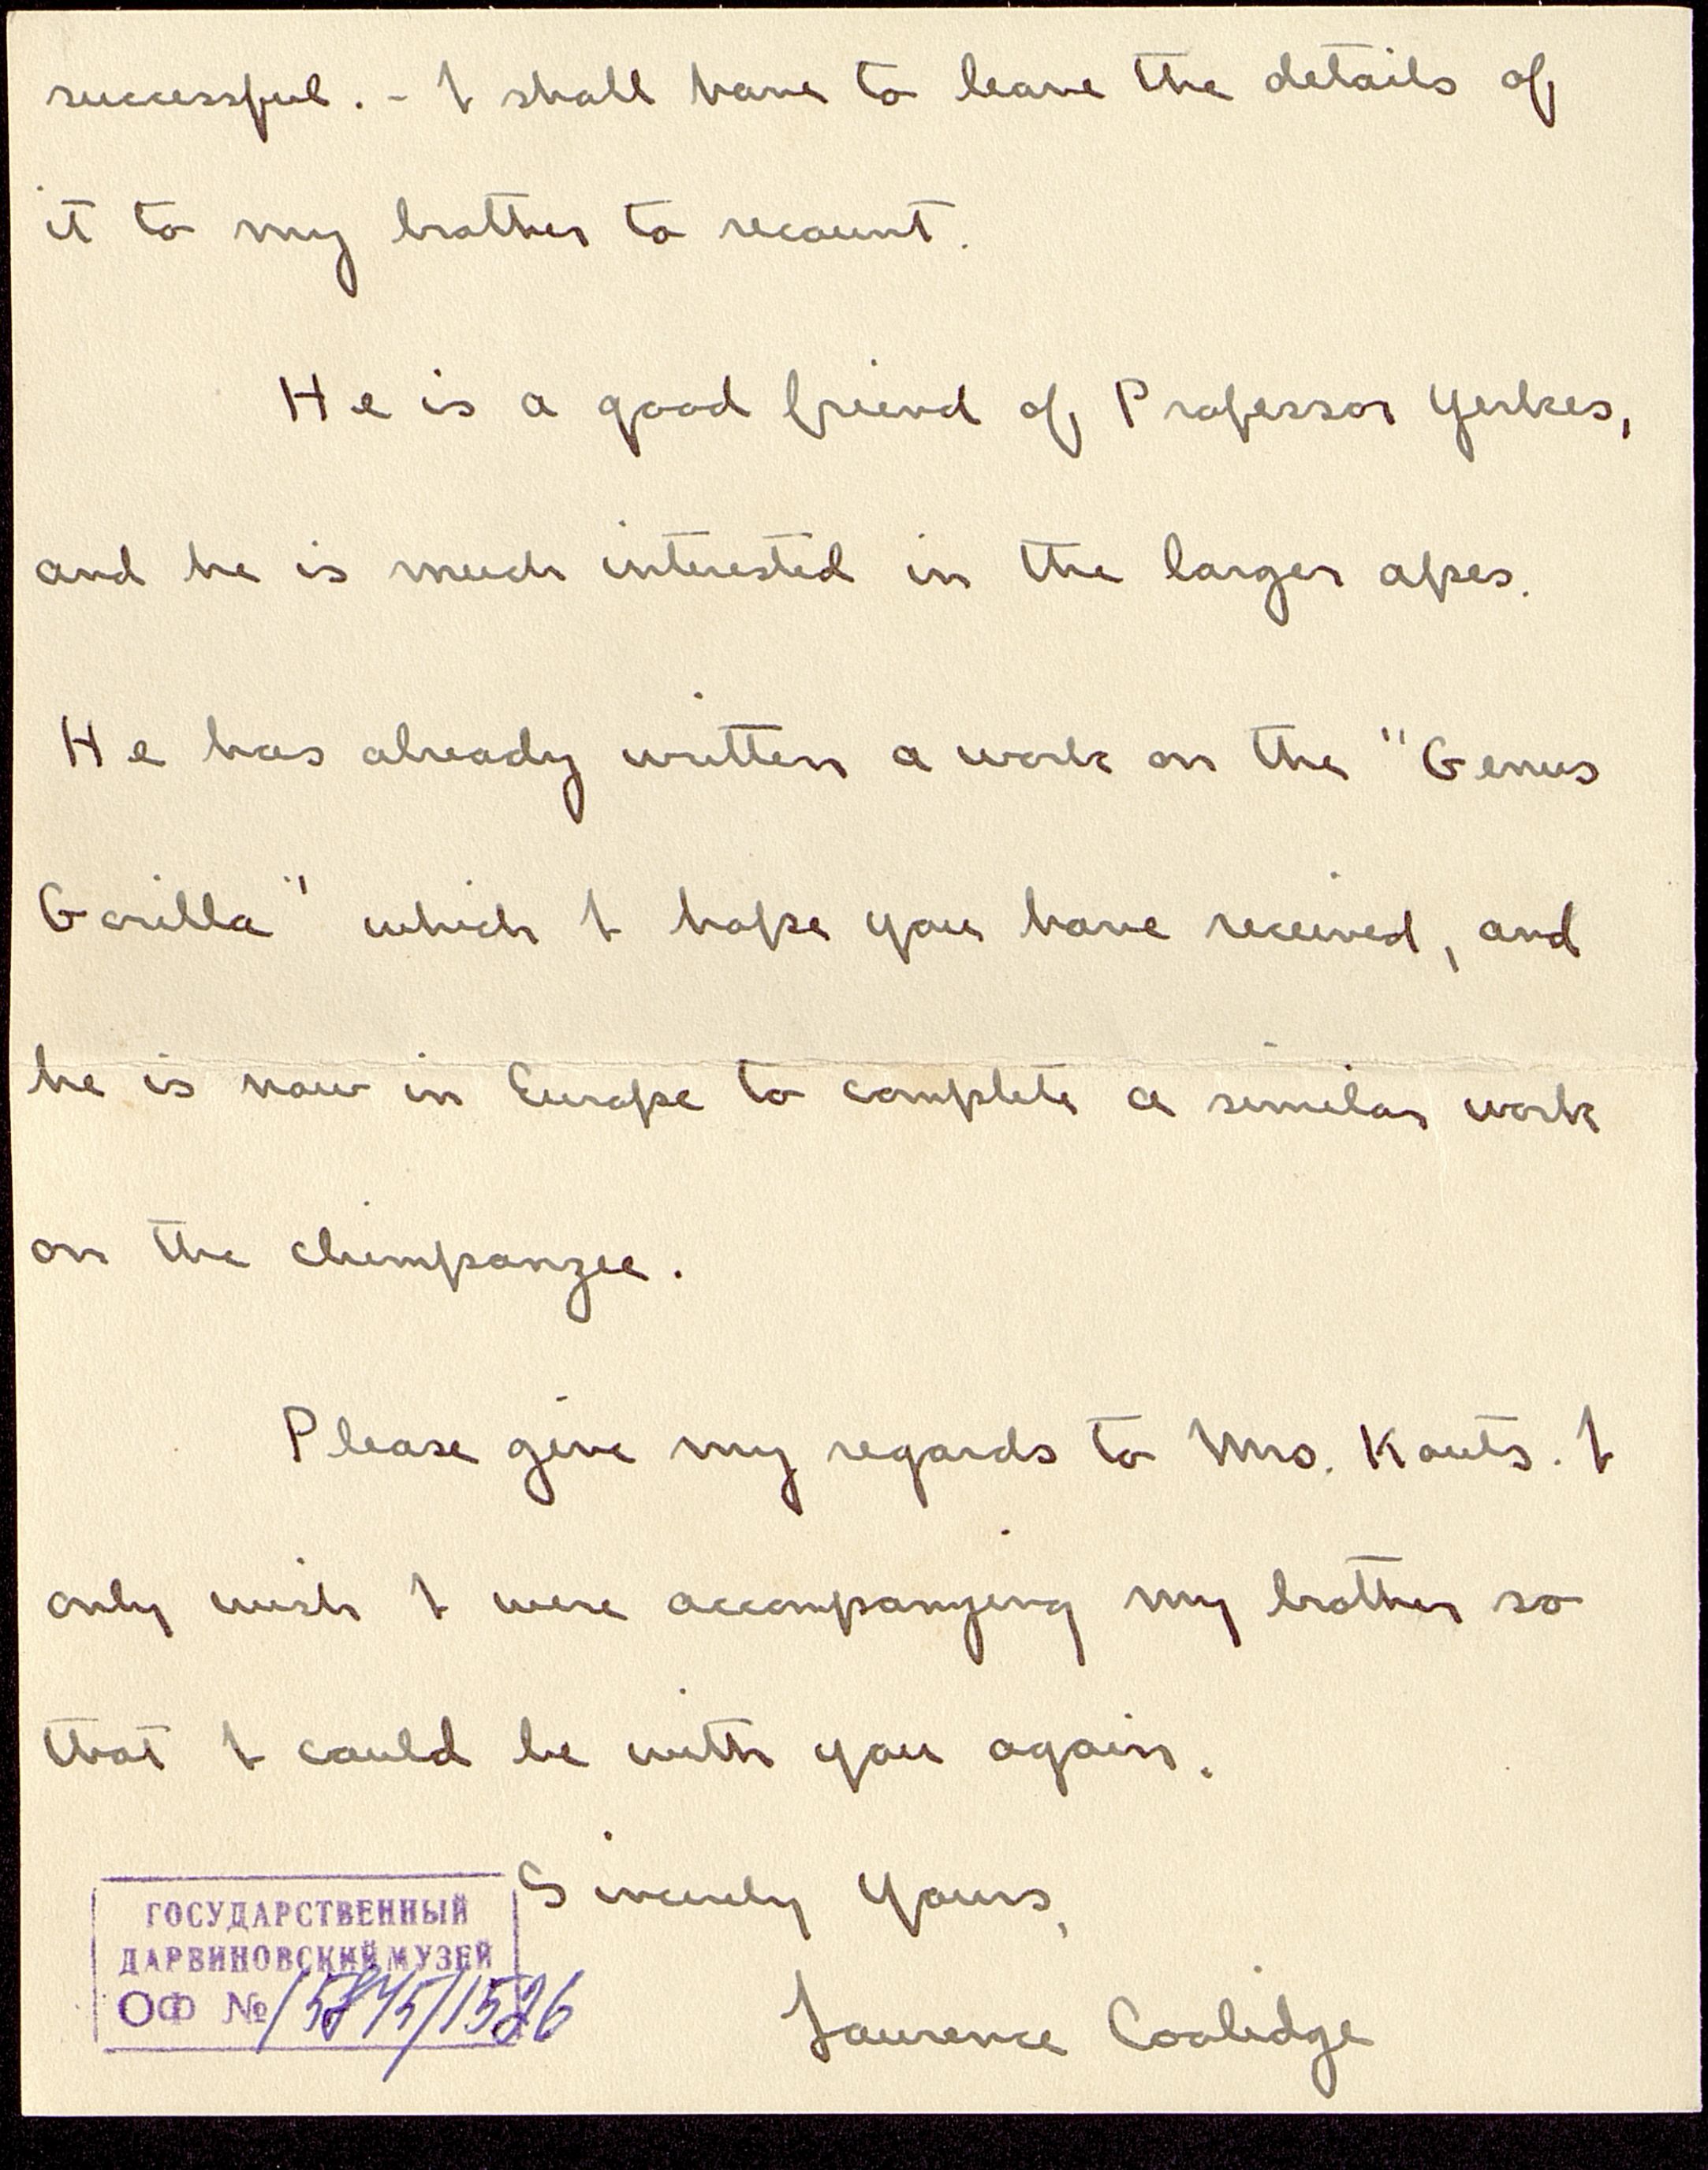 successful. - I shall have to leave the details of
it to my brother to recount.
He is a good friend of Professor Yerkes,
and he is much interested in the larger apes.
He has already written a work on the "Genus
Gorilla" which I hope you have received, and
he is now in Europe to complete a similar work
on the chimpanzee.
Please give my regards to Mrs. Kouts. I
only wish I were accompanying my brother so
that I could be with you again.
Sincerely Yours,
Laurence Coolidge
ГОСУДАРСТВЕННЫЙ
ДАРВИНОВСКИЙ МУЗЕЙ
ОФ № 15845/1526